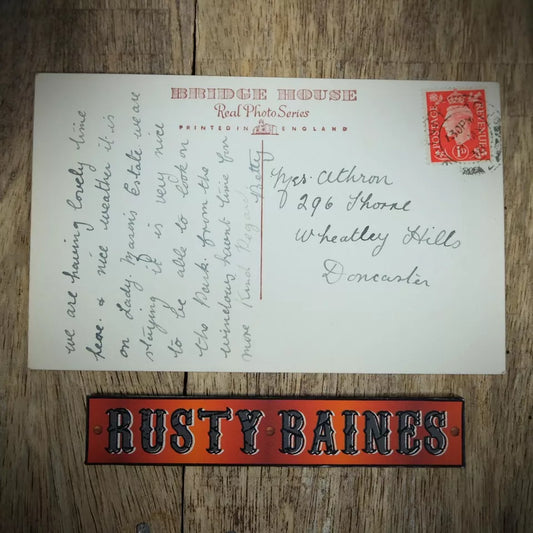 BRIDGE HOUSE
Real Photo Series
PRINTED IN ENGLAND
POSTAGE
REVENUE
1D
we are having lovely time
here. & nice weather it is
on Lady. Mason's Estate we are
staying it is very nice
to be able to look on
the Park. from the
windows havnt time for
more Kind Regards
Betty
Mrs. Athron
296 Thorne
Wheatley Hills
Doncaster
RUSTY BAINES